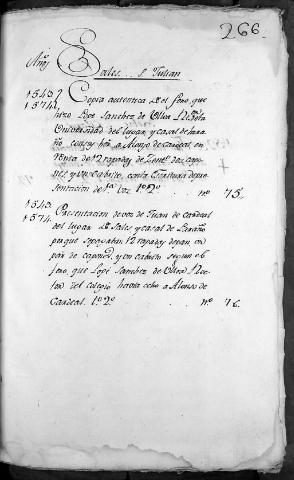 266
Años
Sales. S. Julian
1543
1574
Copia autentica del foro, que
hizo Lope Sanchez de Ulloa
Universidad del lugar y casal de
a Alonso de Cardeal, en
renta de 12 rapadas de
y un Cabrito, con la Escritura de pre
sentacion de 1ª voz 1º 2º nº 75.
1543.
1574.
Presentacion de voz de Juan de cardeal
del lugar de Sales y casal de Laraño
por que se pagaban 12 rapadas de pan un
par de capones, y un cabrito segun el
foro, que Lope Sanchez de Ulloa Rec
tor del colegio havia echo a Alonso de
Cardeal. 1º 2º nº 76